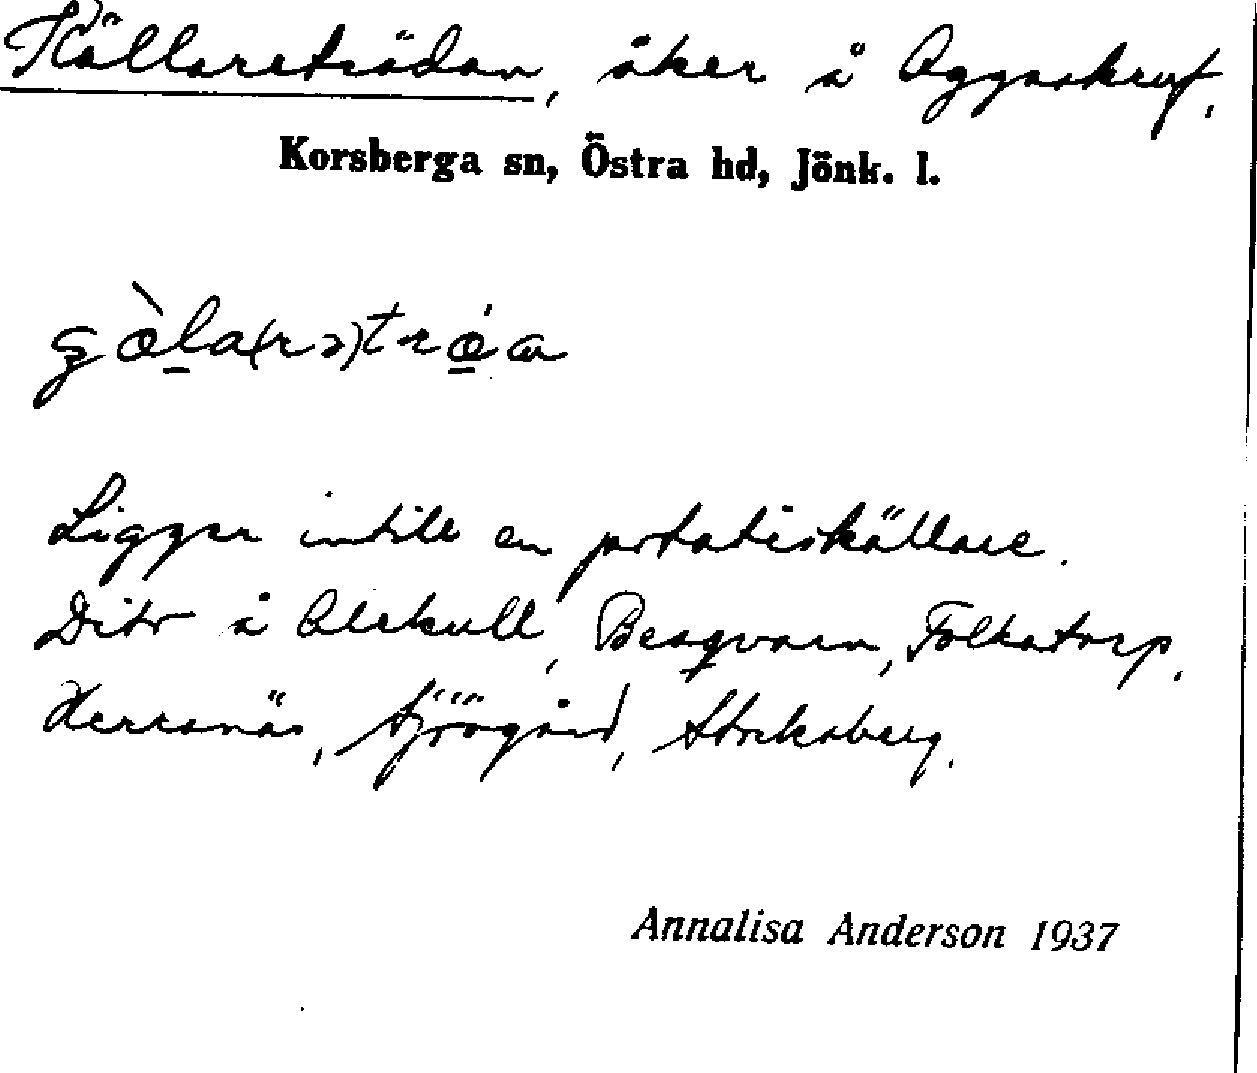 Källareträdan, åker å Aggaskruv.
Korsberga sn, Östra hd, Jönk. l.
Ligger intill en potatiskällare.
Dito å Alekull, Bergvarn, Folkatorp,
Herranäs, Sjögård, Stocksberg.
Annalisa Anderson 1937